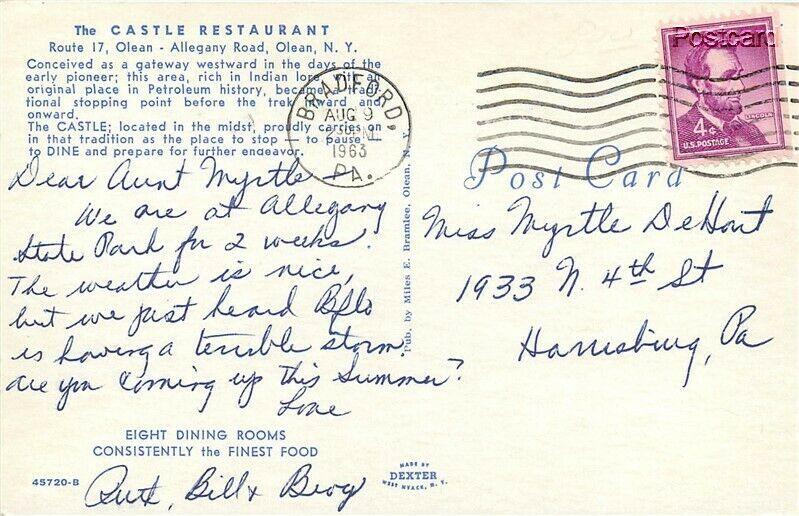 The CASTLE RESTAURANT
Route 17, Olean - Allegany Road, Olean, N. Y.
Conceived as a gateway westward in the days of the
early pioneer; this area, rich in Indian lore, with an
original place in Petroleum history, became a tradi-
tional stopping point before the trek onward and
onward.
The CASTLE; located in the midst, proudly carries on
in that tradition as the place to stop - to pause
to DINE and prepare for further endeavor.
BRADFORD,
AUG 9
1963
PA.
Postcard
4¢
LINCOLN
U.S. POSTAGE
Post Card
Dear Aunt Myrtle
We are at Allegany
State Park for 2 weeks.
The weather is nice,
but we just heard Bflo
is having a terrible storm.
are you coming up this Summer?
Love
Bill &
Pub. by Miles E. Bramlee, Olean, N. Y.
Miss Myrtle DeHart
1933 N. 4th St
Harrisburg, Pa
EIGHT DINING ROOMS
CONSISTENTLY the FINEST FOOD
45720-B
MADE BY
DEXTER
WEST NYACK, N. Y.